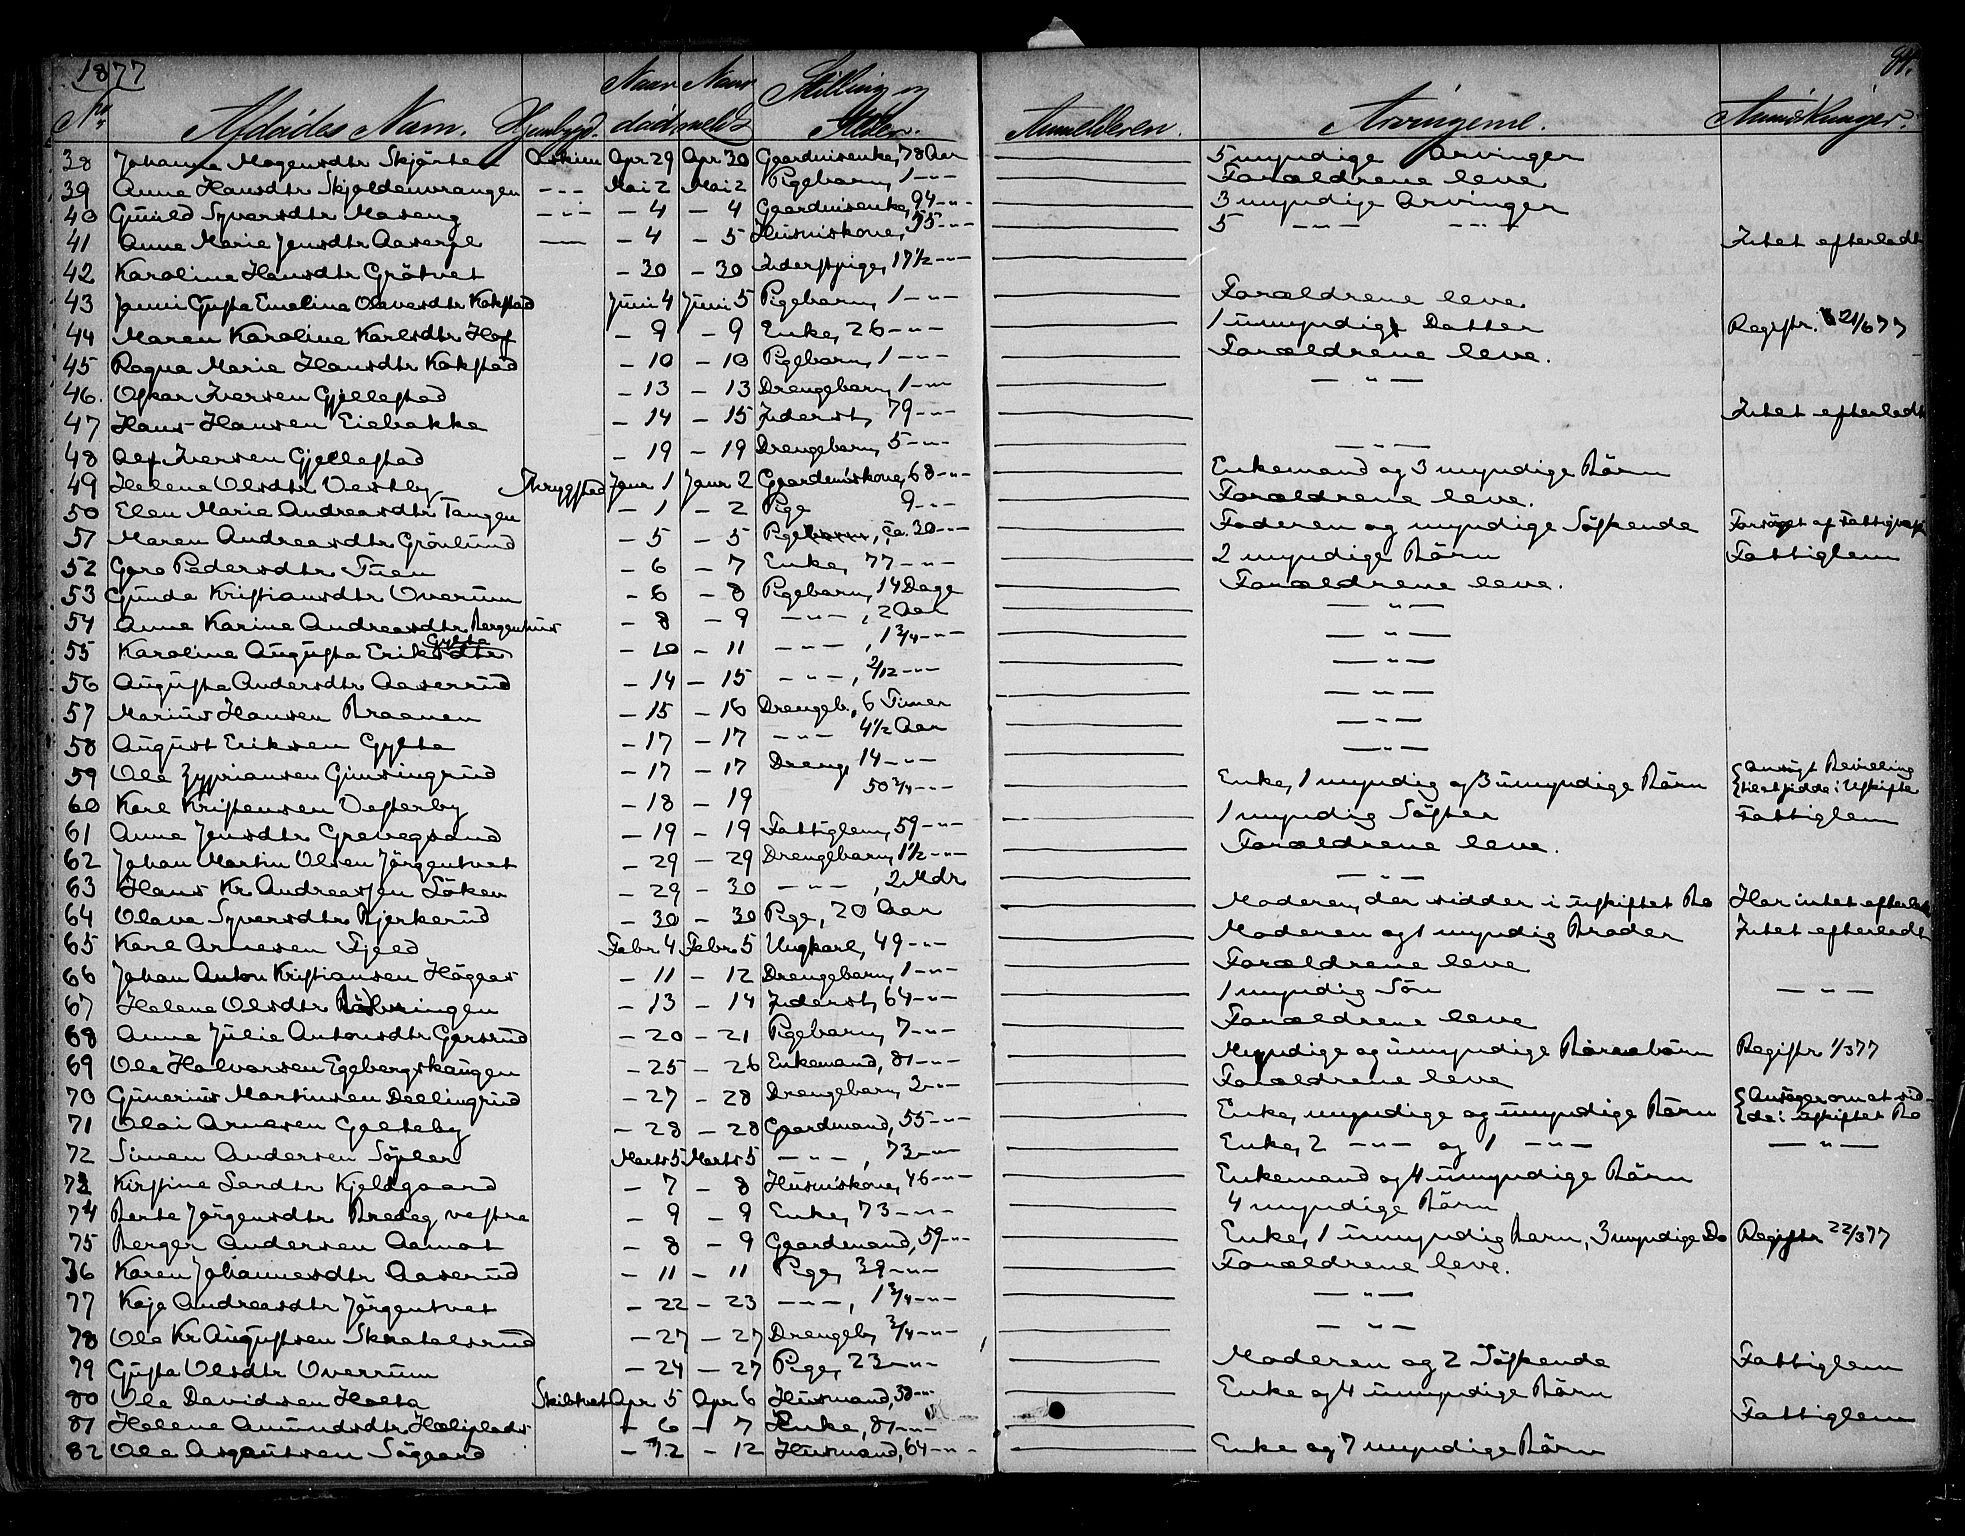 1877
No Afdødes Navn. Hjembygd. Naar død Naar meldt Stilling og Alder. Anmelderen. Arvingerne. Anmærkninger.
38 Johanne Mogensdtr Askim Apr 29 Apr 30 Gaardmisenke, 78 Aar — 5 myndige Arvinger
39 Anne Hansdtr Skjoldenvrangen -"- Mai 2 Mai 2 Pigebarn, 1 -"- — Forældrene leve
40 Gunild Syversdtr Maseng -"- - 4 - 4 Gaardmisenke, 94 -"- — 3 myndige Arvinger
41 Anne Marie Jensdtr — - 4 - 5 Husmiskone, 55 -"- — 5 -"- -"- Intet efterladt
42 Karoline Hansdtr Grötvet - 30 - 30 Inderstpige, 17½ -"- —
43 Emeline Olavesdtr Kakstad Juni 4 Juni 5 Pigebarn, 1 -"- — Forældrene leve
44 Maren Karoline Karlsdtr Hof - 9 - 9 Enke, 26 -"- — 1 umyndigt Datter Registr. 21/6 77
45 Ragna Marie Hansdtr Kakstad - 10 - 10 Pigebarn, 1 -"- — Forældrene leve.
46. Oskar Iversen Gjellestad - 13 - 13 Drengebarn, 1 -"- — — " —
47 Hans Hansen Eiebakke - 14 - 15 Inderst, 79 -"- — Intet efterladt
48 Alf Iversen Gjellestad - 19 - 19 Drengebarn, 5 -"- — — " —
49 Helene Olsdtr Vestby Trygstad Janr 1 Janr 2 Gaardmiskone, 68 -"- — Enkemand og 3 myndige Börn
50 Elen Marie Andreasdtr Tangen - 1 - 2 Pige 9 -"- — Forældrene leve.
51 Maren Andreasdtr Grönlund - 5 - 5 Pige, ca. 30 -"- — Faderen og myndige Söskende Forsörget af
52 Goro Pedersdtr Tuen - 6 - 7 Enke, 77 -"- — 2 myndige Börn Fattiglem
53 Gunda Kristiansdtr Overum - 6 - 8 Pigebarn, 14 Dage — Forældrene leve.
54 Anne Karine Andreasdtr Bergenhus - 8 - 9 -"- , 2 Aar — — " —
55 Karoline Augusta Eriksdtr Gylte - 10 - 11 -"- , 1¾ -"- — — " —
56 Augusta Andersdtr Aaserud - 14 - 15 -"- , 2/12 -"- — — " —
57 Marius Hansen Braanen - 15 - 16 Drengeb., 6 Timer — — " —
58 August Eriksen Gylte - 17 - 17 -"- 4½ Aar — — " —
59 Ole Zypriansen - 17 - 17 Dreng, 14 -"- — — " —
60 Karl Kristensen Vesterby - 18 - 19 50¾ -"- — Enke, 1 myndig og 3 umyndige Börn {Ansögt Bevilling {til at sidde i Uskifte
61 Anne Jensdtr Grevegsand - 19 - 19 Fattiglem, 59 -"- — 1 myndig Söster Fattiglem
62 Johan Martin Olsen Jörgentvet - 29 - 29 Drengebarn, 1½ -"- — Forældrene leve.
63 Hans Kr. Andreassen Löken - 29 - 30 -"- , 2 Mdr — — " —
64 Olava Syversdtr Bjerkerud - 30 - 30 Pige, 20 Aar — Moderen, der sidder i uskiftet Bo Har intet efterladt
65 Karl Arnesen Fjeld Febr 4 Febr 5 Ungkarl, 49 -"- — Moderen og 1 myndig Broder Intet efterladt
66 Johan Anton Kristiansen Högaas - 11 - 12 Drengebarn, 1 -"- — Forældrene leve
67 Helene Olsdtr - 13 - 14 Inderst, 64 -"- — 1 myndig Sön — " —
68 Anne Julie Antonsdtr Gersrud - 20 - 21 Pigebarn, 7 -"- — Forældrene leve
69 Ole Halvorsen Egebergskaugen - 25 - 26 Enkemand, 81 -"- — Myndige og umyndige Börnebörn Registr 1/3 77
70 Gunerius Martinsen Dælingrud - 27 - 28 Drengebarn, 2 -"- — Forældrene leve
71 Olai Arnesen Galteby - 28 - 28 Gaardmand, 55 -"- — Enke, myndige og umyndige Börn {Ansöger om at sid- {de i uskiftet Bo
72 Simen Andersen Söpler Marts 5 Marts 5 -"- , 73 -"- — Enke, 2 -"- og 1 -"- — " —
73 Kirstine Larsdtr Kjeldgaard - 7 - 8 Husmiskone, 46 -"- — Enkemand og 4 umyndige Börn
74 Berte Jörgensdtr Bredeg vestre - 9 - 9 Enke, 73 -"- — 4 myndige Börn
75 Berger Andersen Aamot - 8 - 9 Gaardmand, 59 -"- — Enke, 1 umyndig Barn, 3 myndige Do Registr 22/3 77
76 Karen Johannesdtr Aaserud - 11 - 11 Pige, 39 -"- — Forældrene leve.
77 Kaja Andreasdtr Jörgentvet - 22 - 23 -"- , 1¾ -"- — — " —
78 Ole Kr. Augustsen Skratelsrud - 27 - 27 Drengeb, ¾ -"- — — " —
79 Gusta Olsdtr Overrum - 24 - 27 Pige, 23 -"- — Moderen og 2 Söskende Fattiglem
80 Ole Davidsen Holta Skibtvet Apr 5 Apr 6 Husmand, 38 -"- — Enke og 4 umyndige Börn
81 Helene Amundsdtr - 6 - 7 Enke, 81 -"- — Fattiglem
82 Ole Asgautsen Sögaard - 12 - 12 Husmand, 64 -"- — Enke og 7 myndige Börn